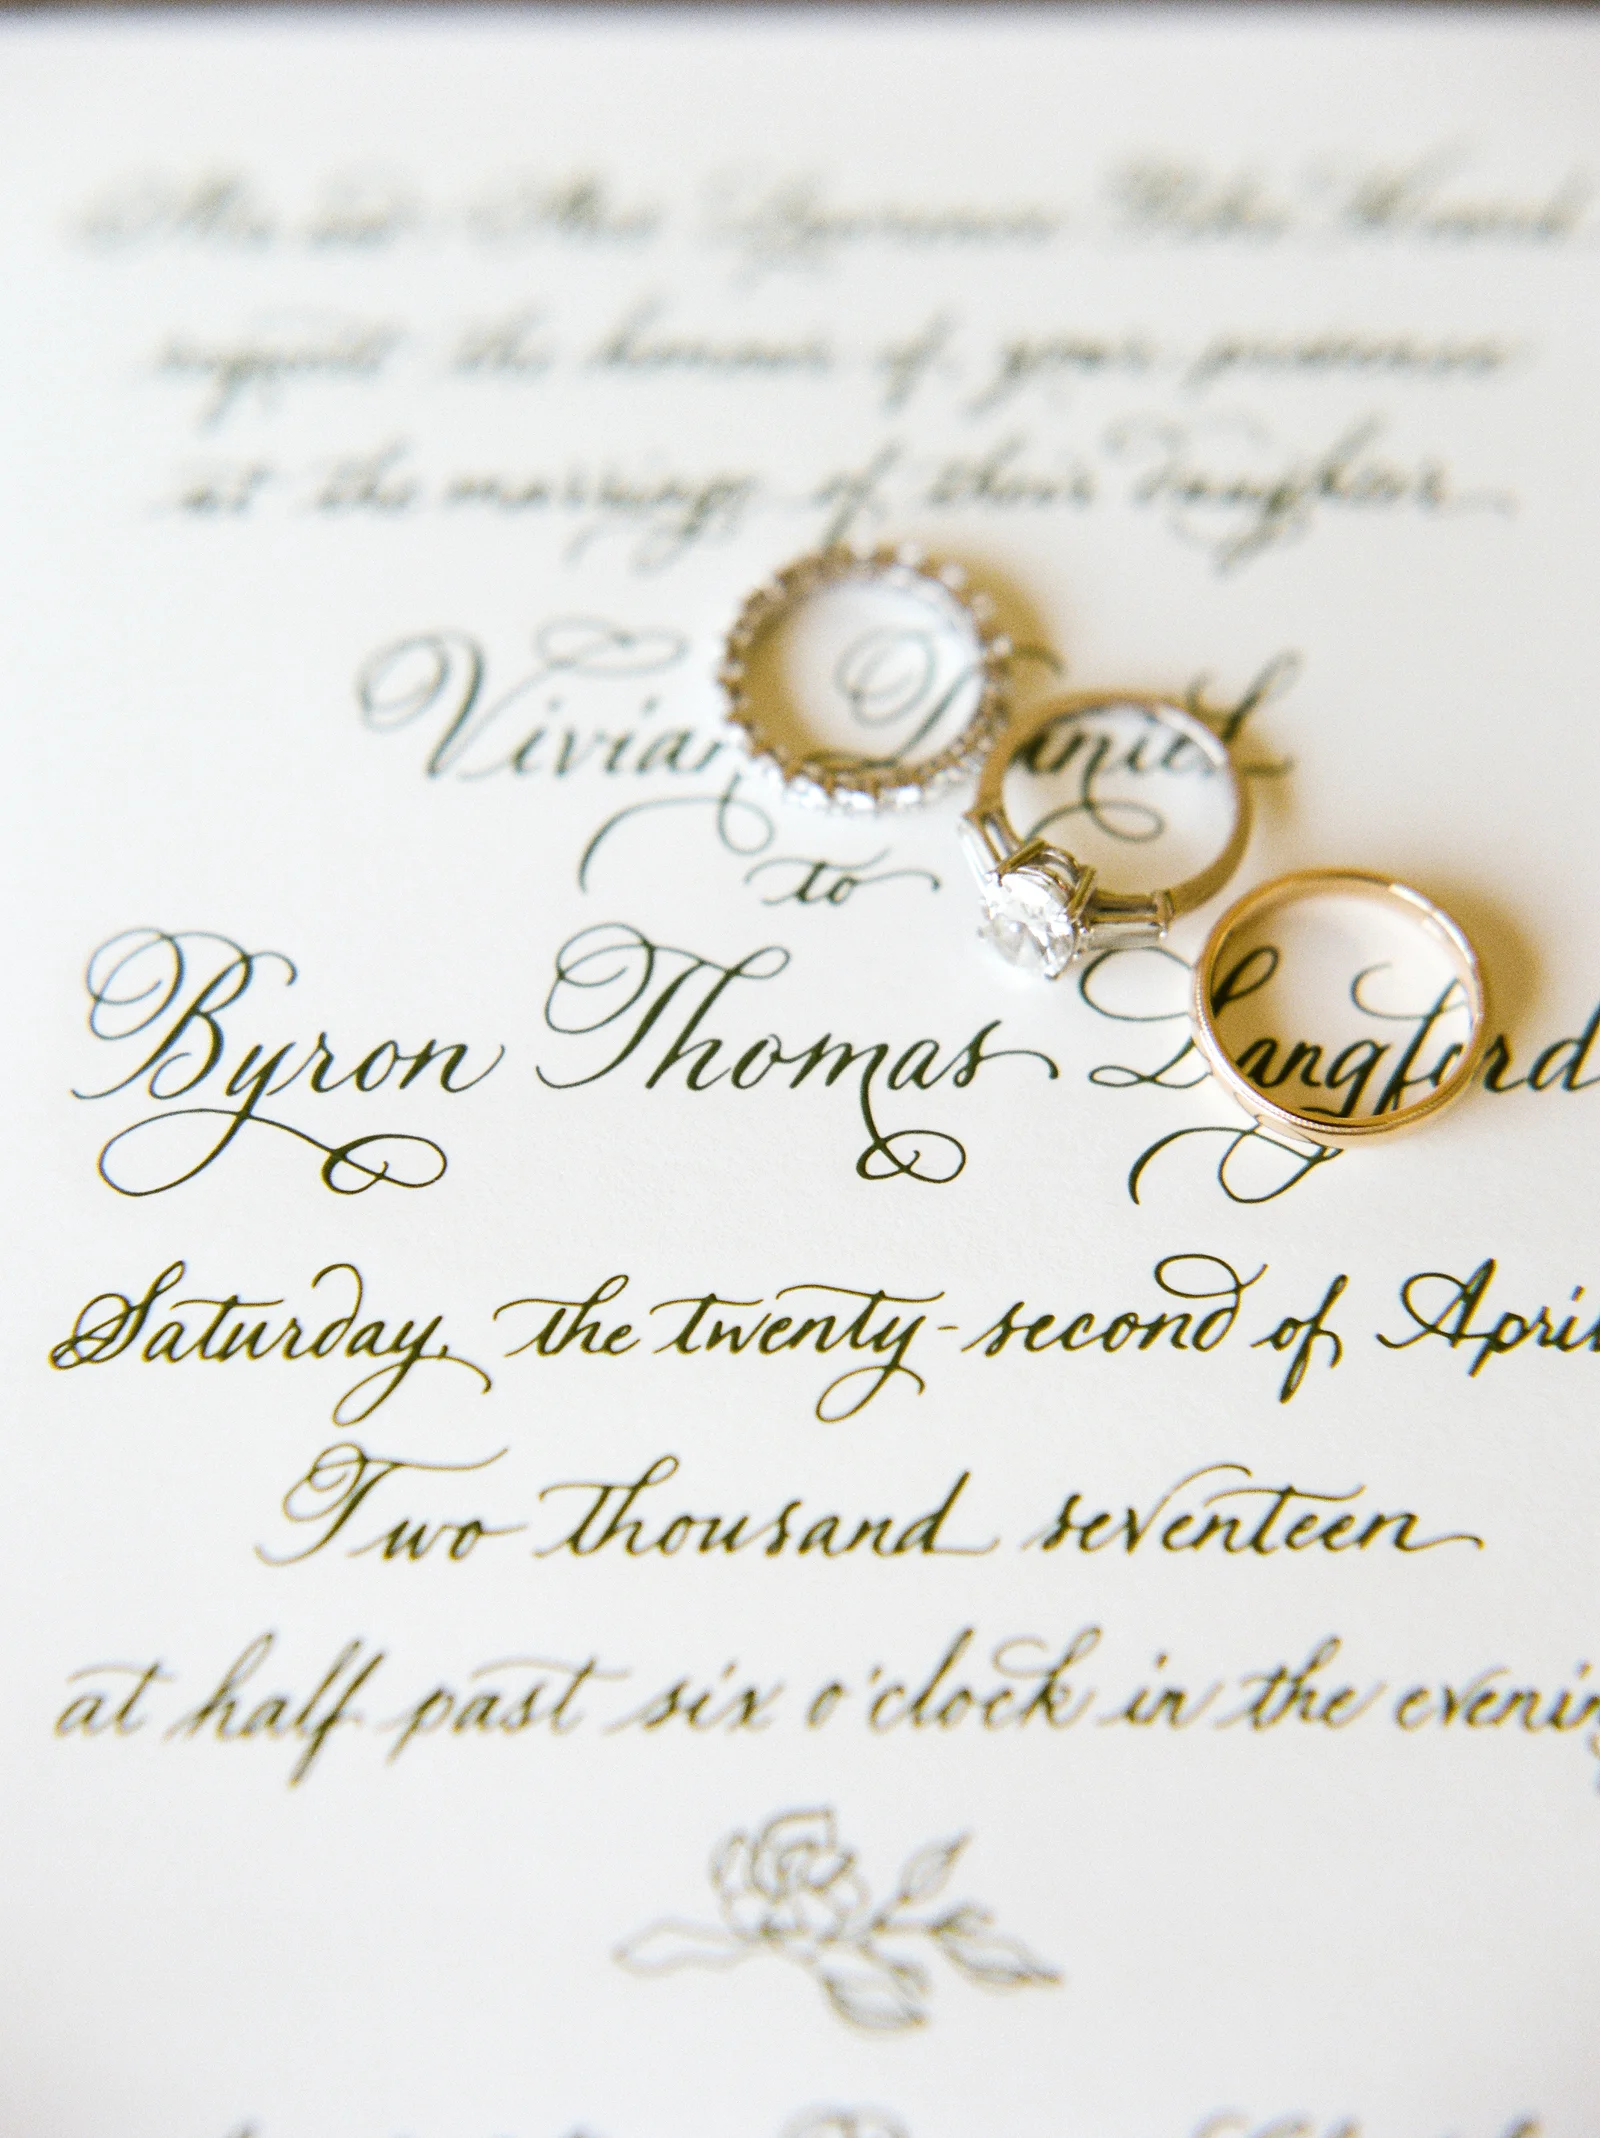 Mr. and Mrs.
request the honour of your presence
at the marriage of their daughter
Vivian Daniel
to
Byron Thomas Langford
Saturday, the twenty-second of April
Two thousand seventeen
at half past six o'clock in the evening